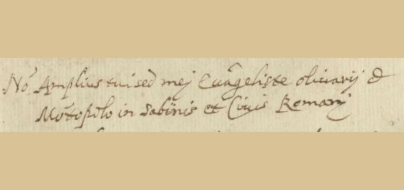 No Amplius tui sed mej Euãgeliste olivarij d
Mõtopolo in Sabinis et Civis Romanj